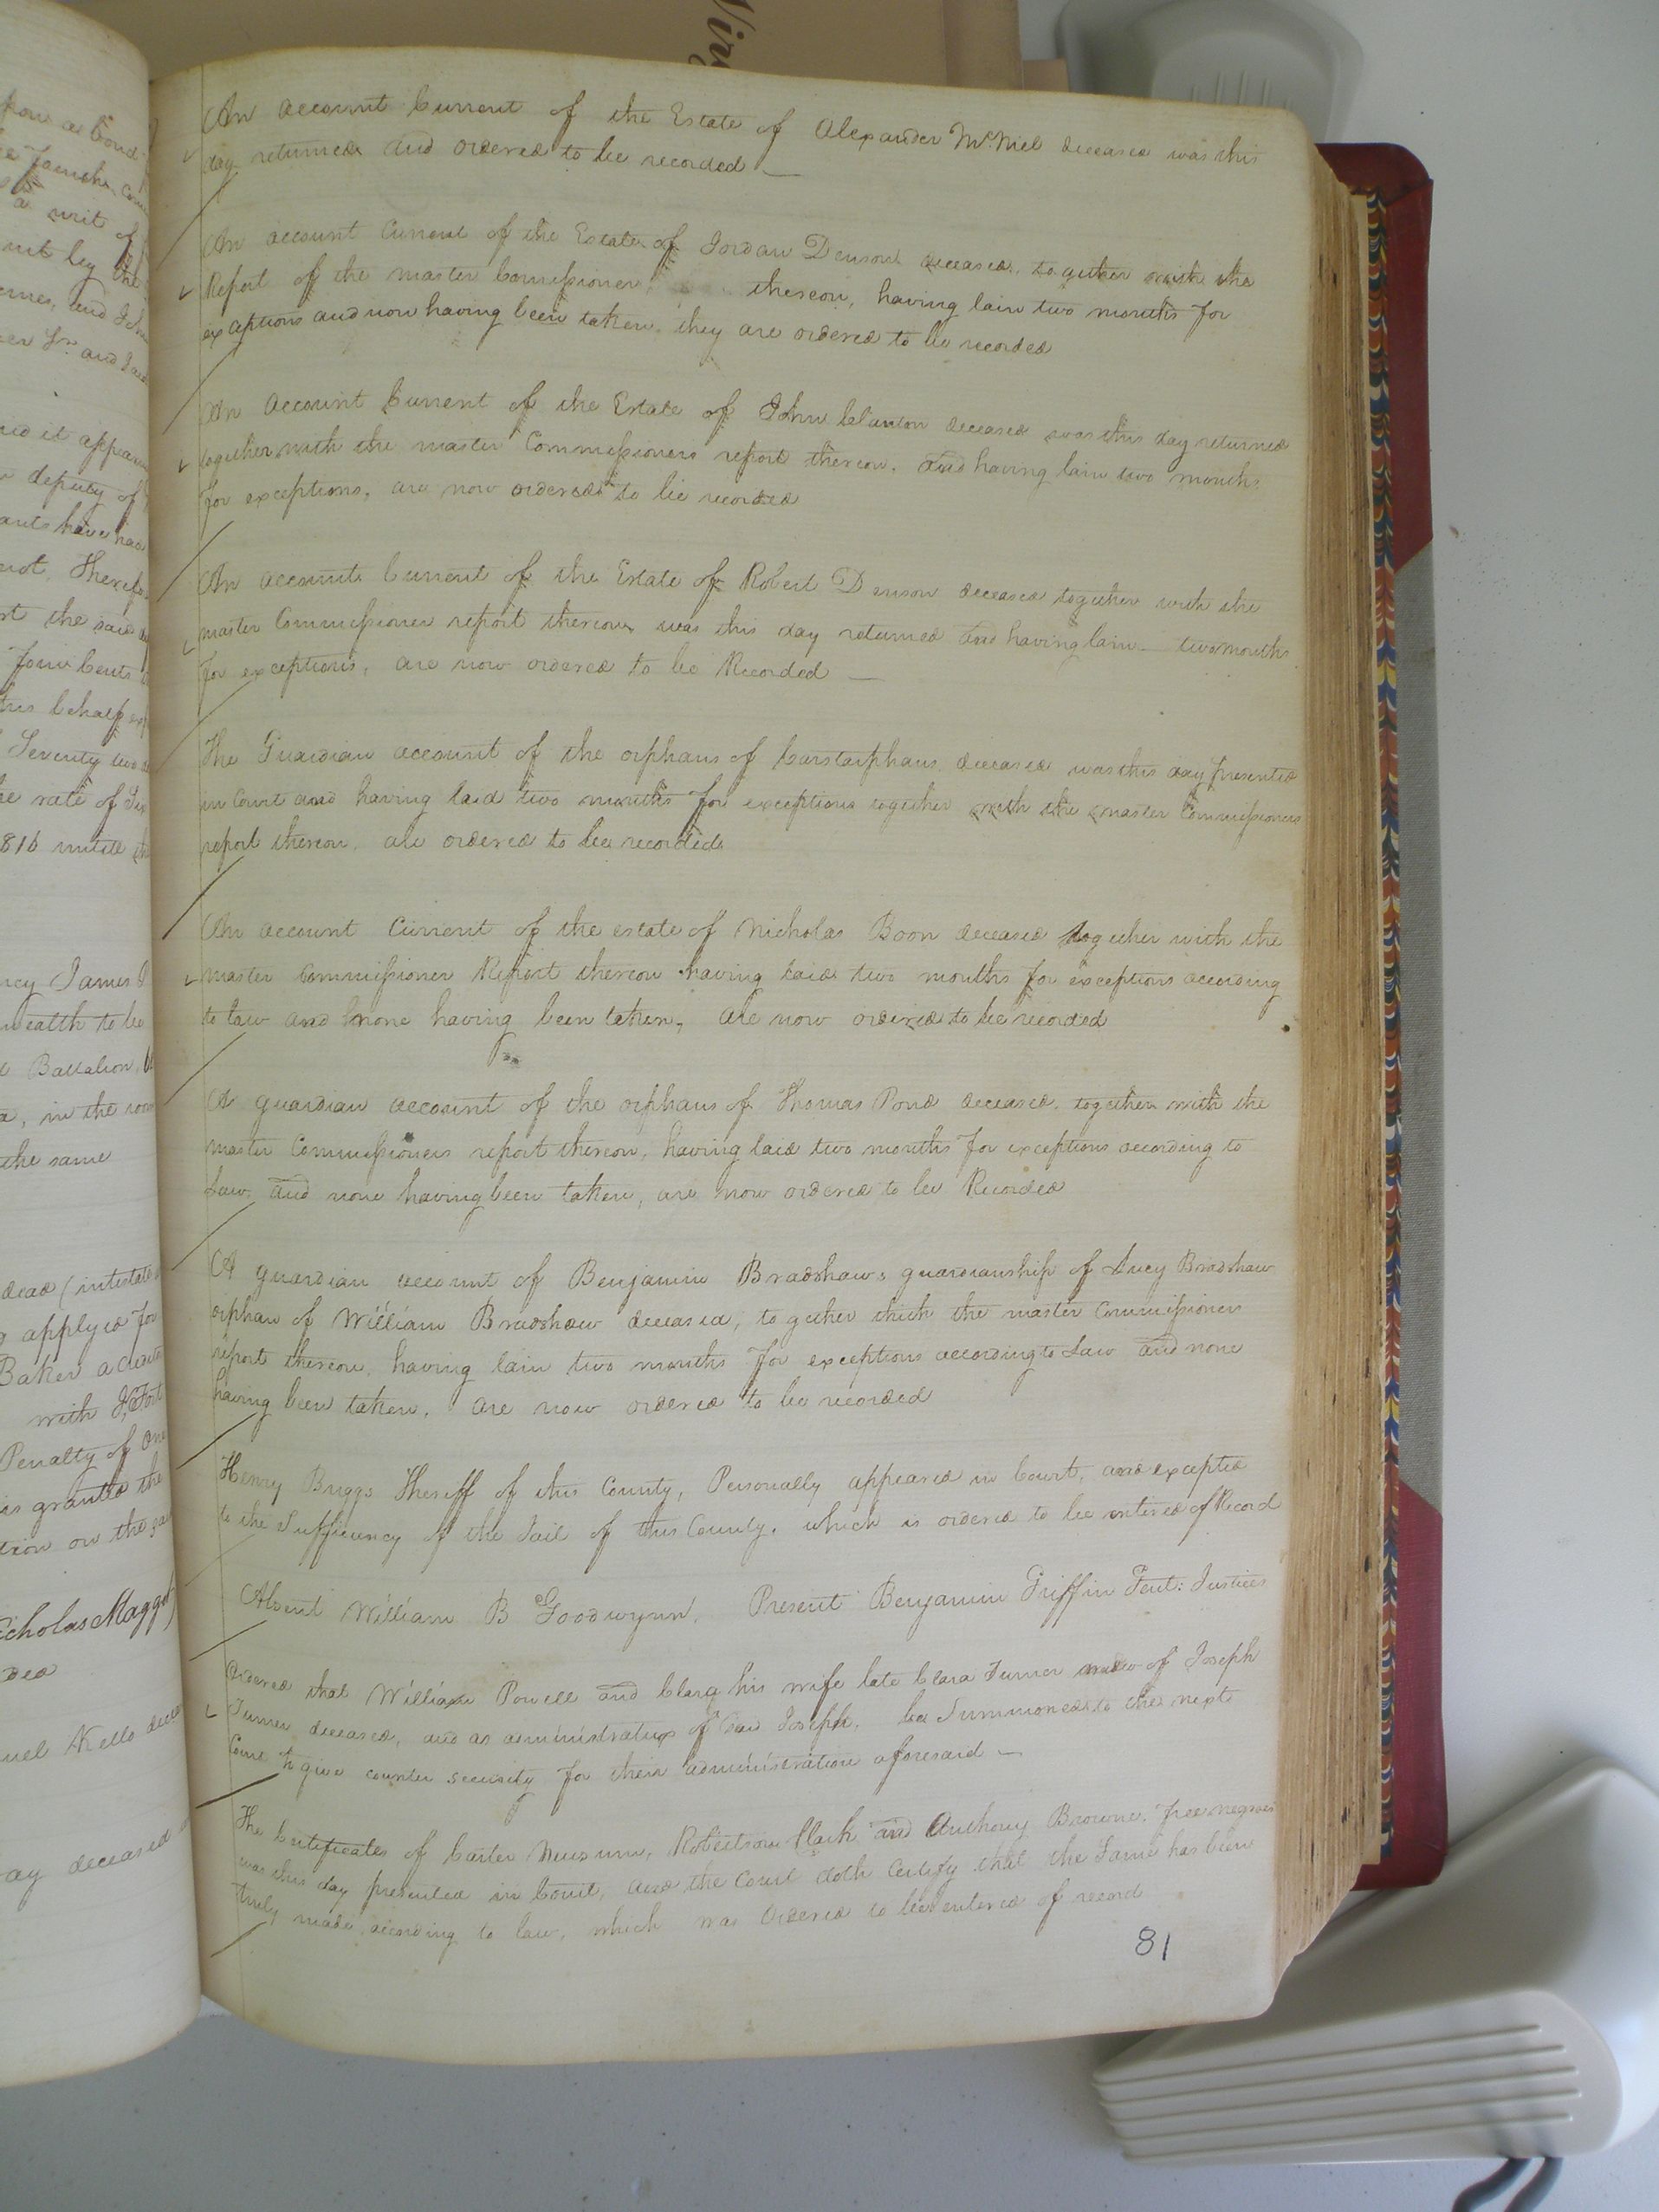 An account Current of the Estate of Alexander McNiel deceased was this
day returned and ordered to be recorded
An account Current of the Estate of Jordan Denson deceased, together with the
Report of the master Commissioner, thereon, having lain two months for
exceptions and non having been taken they are ordered to be recorded
An Account Current of the Estate of John Clanton deceased was this day returned
together with the master Commissioners report thereon, and having lain two months
for exceptions, are now ordered to be recorded
An account Current of the Estate of Robert Denson deceased together with the
master Commissioner report thereon was this day returned and having lain two months
for exceptions, are now ordered to be Recorded
The Guardian account of the orphans of Carstarphans deceased was this day presented
in Court and having laid two months for exceptions together with the master Commissioners
report thereon are ordered to be recorded
An account Current of the estate of Nicholas Boon deceased together with the
master Commissioner Report thereon having laid two months for exceptions according
to law and none having been taken, are now ordered to be recorded
A guardian account of the orphans of Thomas Pond deceased, together with the
master Commissioners report thereon, having laid two months for exceptions according to
Law, and none having been taken, are now ordered to be Recorded
A guardian account of Benjamin Bradshaws guardianship of Lucy Bradshaw
orphan of William Bradshaw deceased, together which the master Commissioners
report thereon, having lain two months for exceptions according to Law and none
having been taken, are now ordered to be recorded
Henry Briggs Sheriff of this County, Personally appeared in Court, and excepted
to the Sufficiency of the Jail of this County, which is ordered to be entered of Record
Absent William B Goodwynn, Present Benjamin Griffin Gent: Justices
Ordered that William Powell and Clara his wife late Clara Turner widow of Joseph
Turner deceased, and as administratrix of Said Joseph, be Summoned to the next
Court to give counter security for their administration aforesaid
The Certificates of Carter Newsum, Robertson Clark and Anthony Browne, free negroes
was this day presented in Court, and the Court doth Certify that the Same has been
truly made according to law, which was Ordered to be entered of record
81
pon a Bond
a writ of
by the
and it appear
deputy of
have had
not, Therefo
the said
Four Cents
behalf
Seventy two
rate of
816 untill
James
wealth to be
Battalion
in the room
the same
dead (intestate
applyed for
Baker a
with
Penalty of One
is granted the
tion on the
icholas Magget
Kello
ay deceased